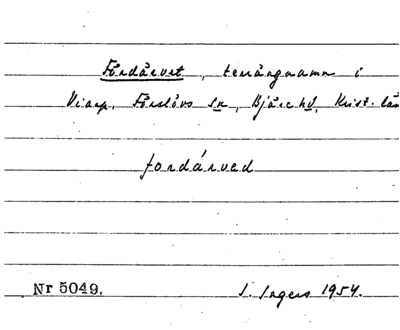 Fördärvet, terrängnamn i
Viarp, Förslövs sn, Bjäre hd, Krist. län
fordárved
Nr 5049.
I. Ingers 1954.